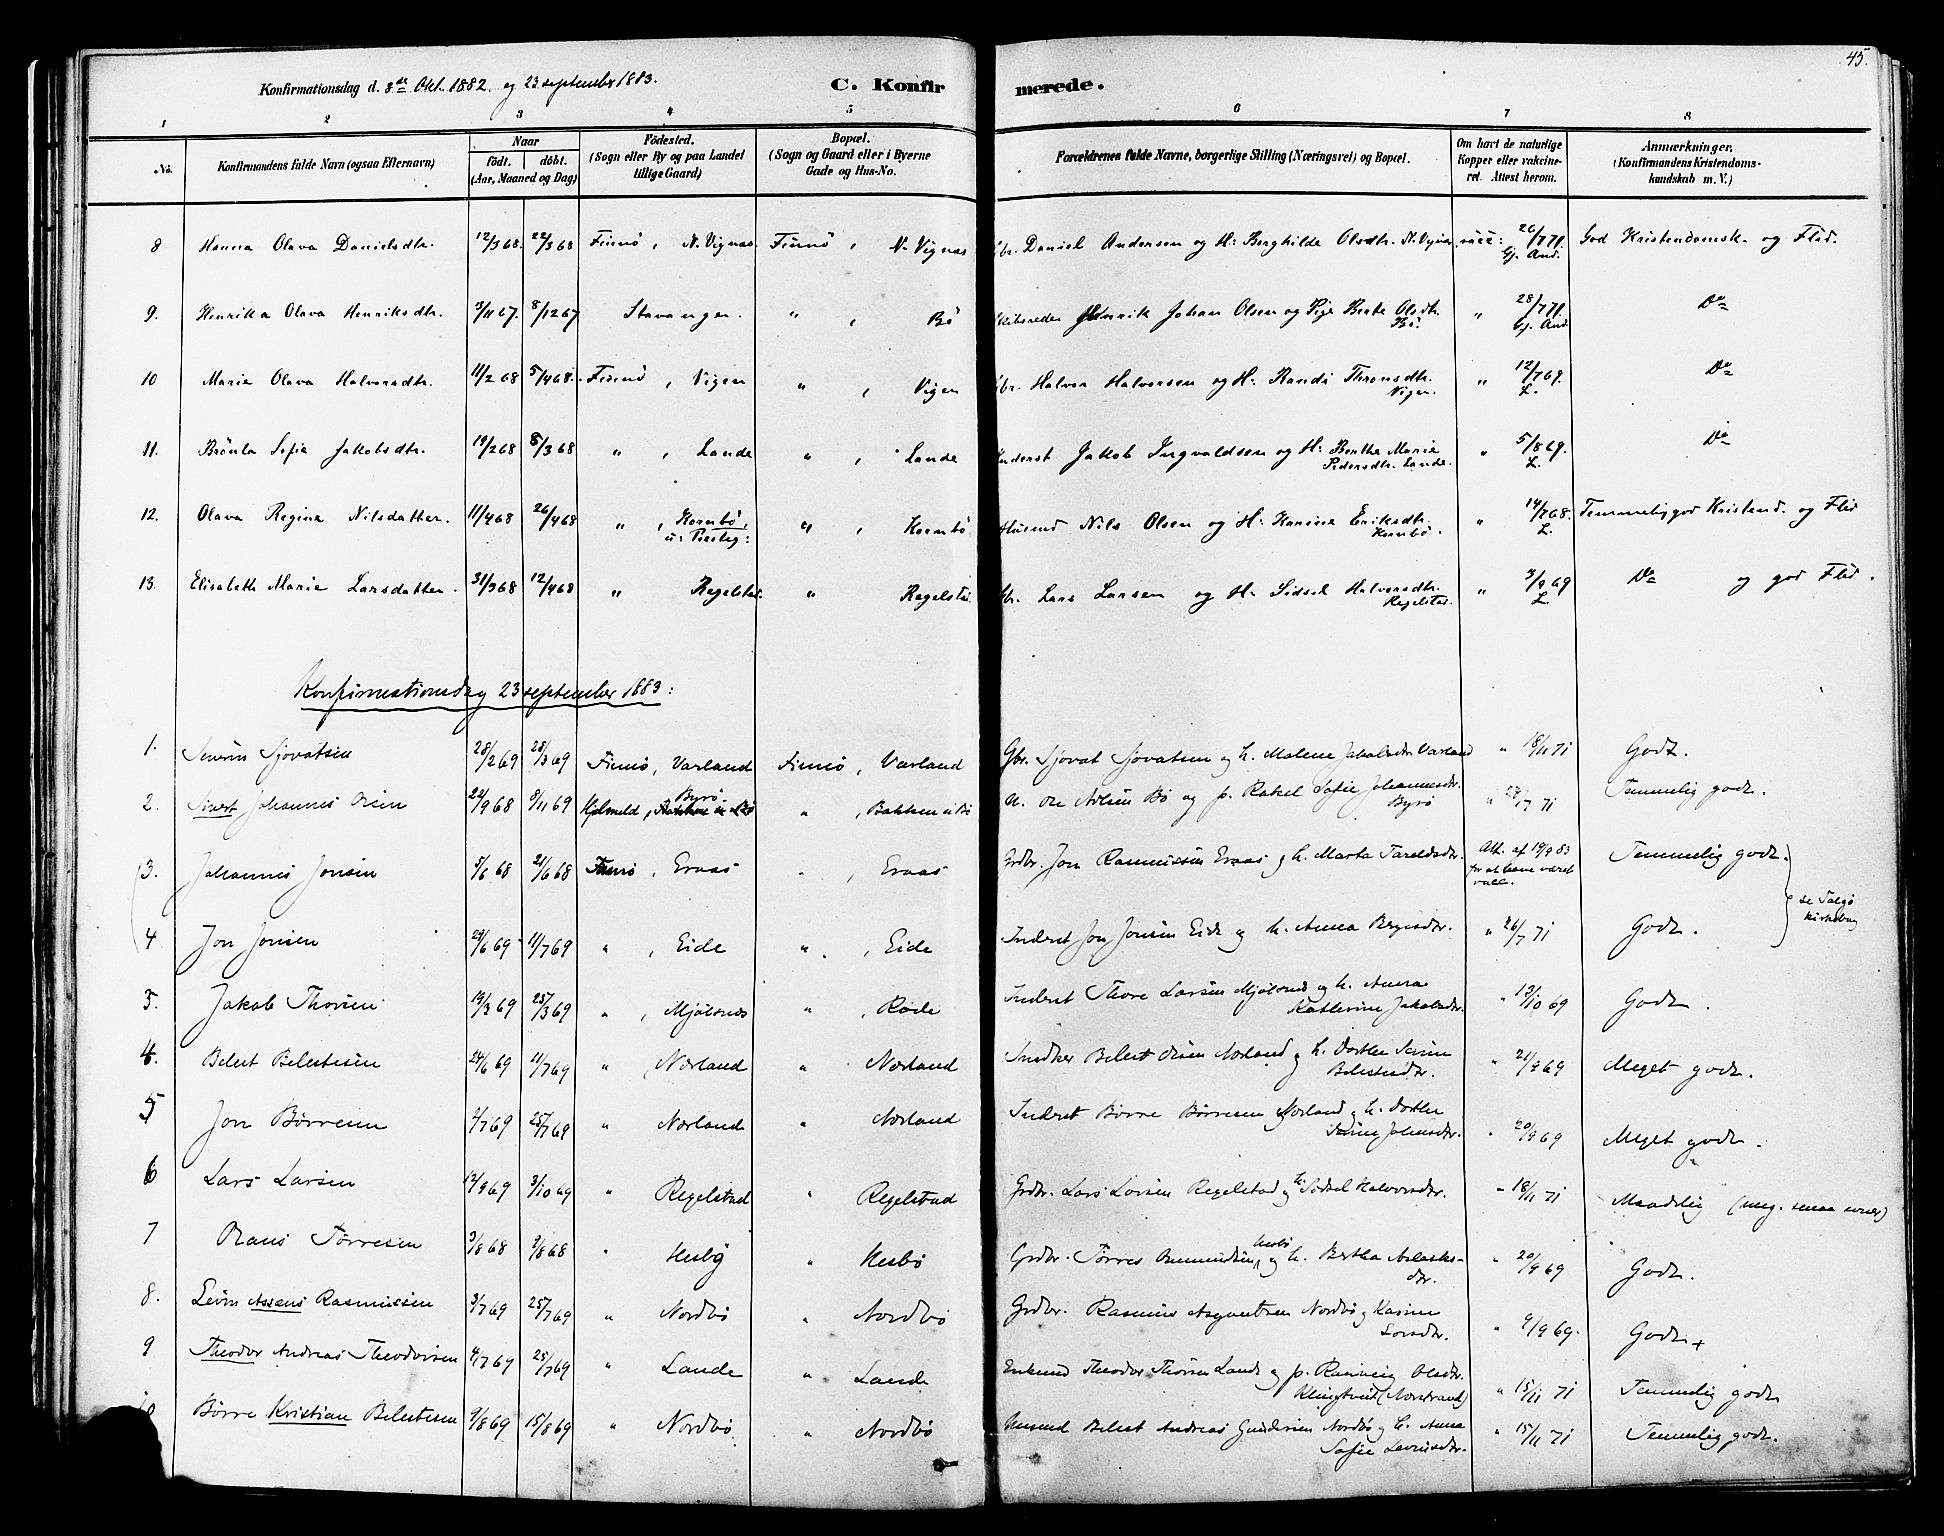 45.
Konfirmationsdag d. 8de Okt. 1882. og 23 september 1883.
C. Konfir merede.
1 2 3 4 5 6 7 8
No. Konfirmandens fulde Navn (ogsaa Efternavn) Naar födt. döbt. (Aar, Maaned og Dag) Födested. (Sogn eller By og paa Landet tillige Gaard) Bopæl. (Sogn og Gaard eller i Byerne Gade og Hus-No. Forældrenes fulde Navne, borgerlige Stilling (Næringsvei) og Bopæl. Om havt de naturlige Kopper eller vakcineret. Attest herom. Anmærkninger. (Konfirmandens Kristendomskundskab m. V.)
8 Hanna Olava Danielsdtr. 12/3 68. 22/3 68 Finnö, N. Vignæs. Finnö, N. Vignæs Gbr. Daniel Andersen og H: Berghilde Olsdtr. N. Vignæs vacc: 26/7 71. Gj. And. God Kristendomsk. og Flid.
9. Henrika Olava Henriksdtr. 3/11 67. 8/12 67 Stavanger. " , Bö Skibsreder Henrik Johan Olsen og Pige Berte Olsdtr. Bö. " 28/7 71. Gj. And Do
10 Marie Olava Halvorsdtr. 11/2 68 5/4 68. Finnö, Vigen " , Vigen Gbr. Halvor Halvorsen og H: Randi Thronsdtr. Vigen. " 12/7 69. L. Do
11. Brönla Sofie Jakobsdtr. 19/2 68 8/3 68 " , Lande " , Lande Inderst Jakob Ingvaldsen og H: Berthe Marie Pedersdtr. Lande. " 5/8 69. L. Do
12. Olava Regine Nilsdatter. 11/4 68 26/4 68 " , Kornbö, u: Præsteg: " , Kornbö Husmd Nils Olsen og H: Karine Eriksdtr. Kornbö " 14/7 68. L. Temmelig god Kristend. og Flid
13. Elisabeth Marie Larsdatter. 31/3 68 12/4 68 " Regelstad. " Regelstad. Gbr. Lars Larsen og H: Sidsel Halvorsdtr. Regelstad. " 3/9 69 L. Do og god Flid.
Konfirmationsdag 23 september 1883:
1. Severin Sjovatsen 28/2 69 28/3 69 Finnö, Varland Finnö, Varland Gbr. Sjovat Sjovatsen og h. Malene Jakobsdtr Varland " 18/11 71 Godt.
2. Sivert Johannes Olsen 22/9 68 8/11 69 Hjelmeland, Byrö " , Bakken u Bö U. Ole Nilsen Bö og p. Rakel Sofie Johannesdtr. Byrö " 27/7 71 Temmelig godt.
3. Johannes Jonsen 5/6 68 21/6 68 Finnö, Eraas " , Eraas Grdbr. Jon Rasmussen Eraas og h. Marta Taraldsdtr. Att. af 19/9 83 for at have været vacc. Temmelig godt.
4. Jon Jonsen 29/6 69 11/7 69 " , Eide " , Eide Inderst Jon Jonsen Eide og h. Anna Birgesdtr. " 26/7 71 Godt. se Talgö kirkebog
5. Jakob Thorsen 14/3 69 25/3 69 " , Mjölsnes " , Røde Inderst Thore Larsen Mjölsnes og h. Anna Kathrine Jakobsdtr. " 13/10 69 Godt.
4. Belest Belestesen 24/6 69 11/7 69 " Nærland " Nærland Belest Olsen Nærland og h. Dorthe Serine Belestesdtr. " 21/9 69 Meget godt.
5 Jon Børresen 2/7 69 25/7 69 " Nærland " Nærland Inderst Børre Børresen Nærland og h. Dorthe Serine Johnsdtr. " 20/9 69 Meget godt.
6 Lars Larsen 12/9 69 3/10 69 " Regelstad " Regelstad Grdbr. Lars Larsen Regelstad og h. Sidsel Halvorsdtr. " 18/11 71 Maadelig (meg. smaa evner)
7 Rasmus Tørresen 3/8 68 9/8 68 " Hesbø " Hesbø Grdbr. Tørres Omundsen Hesbø og h. Bertha Aslaksdtr. " 20/9 69 Godt.
8. Levin Assens Rasmussen 3/7 69 25/7 69 " Nordbø " Nordbø Grdbr. Rasmus Asgautsen Nordbø og Karine Larsdtr. " 9/9 69. Godt
9 Theodor Andreas Theodorsen 4/7 69 25/7 69 " Lande " Lande Enkemd Theodor Thorsen Lande og p. Rannveig Olsdtr. (Norstrand) " 15/11 71 Temmelig godt
10 Børre Kristian Belestesen 9/8 69 15/8 69 " Nordbø " Nordbø Husmd Belest Andreas Gundersen Nordbø og h. Anna Sofie Levinsdtr. " 15/11 71 Temmelig godt.